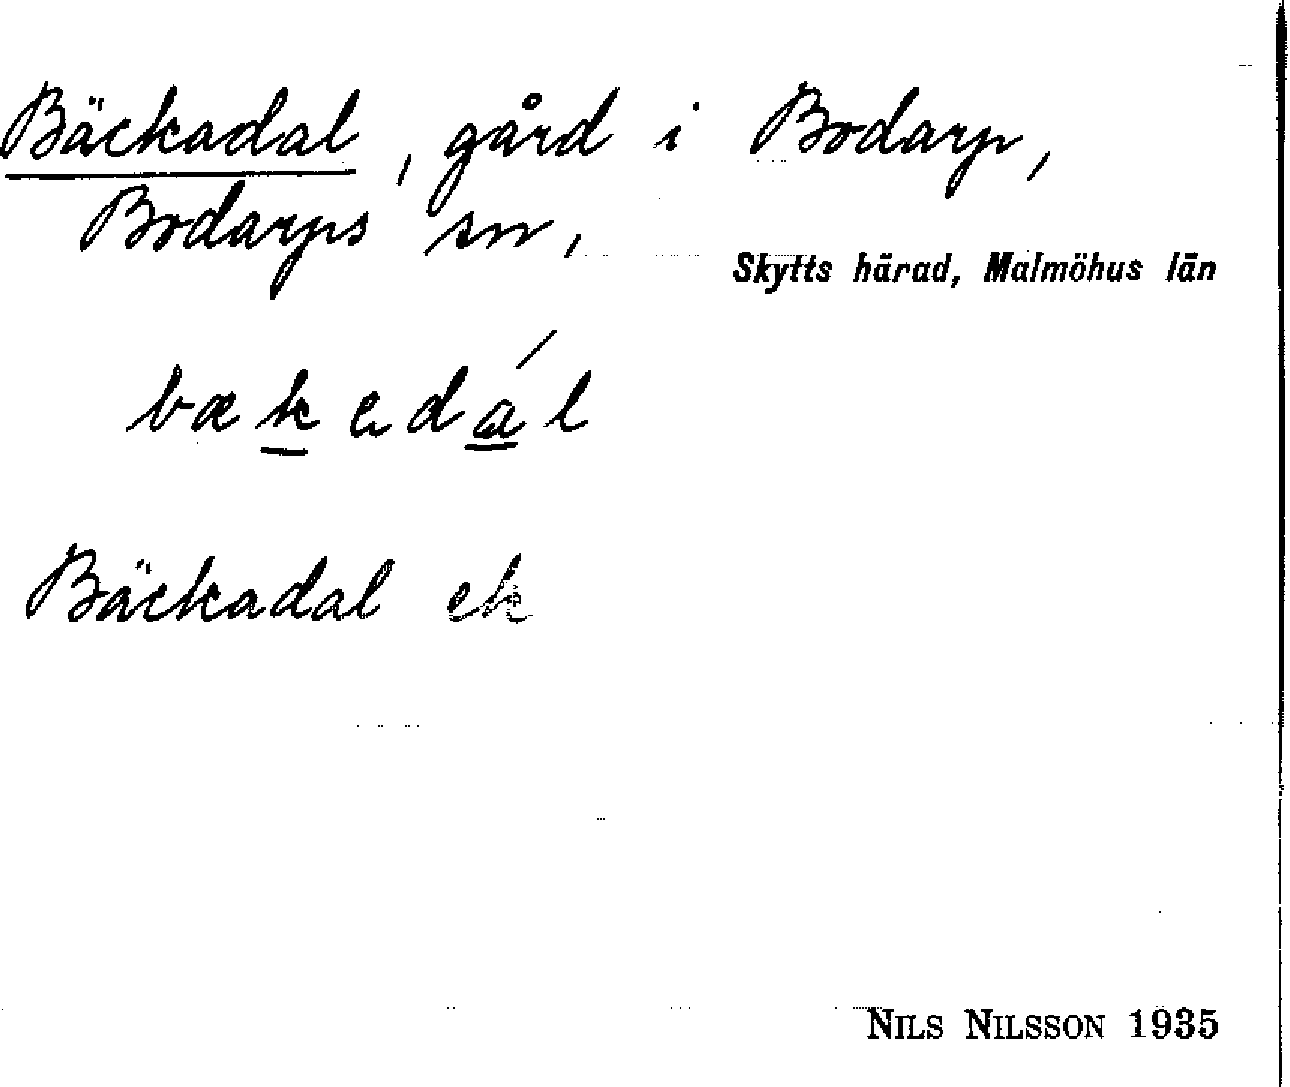 Bäckadal, gård i Bodarp,
Bodarps sn,
Skytts härad, Malmöhus län
bækedál
Bäckadal ek
NILS NILSSON 1935